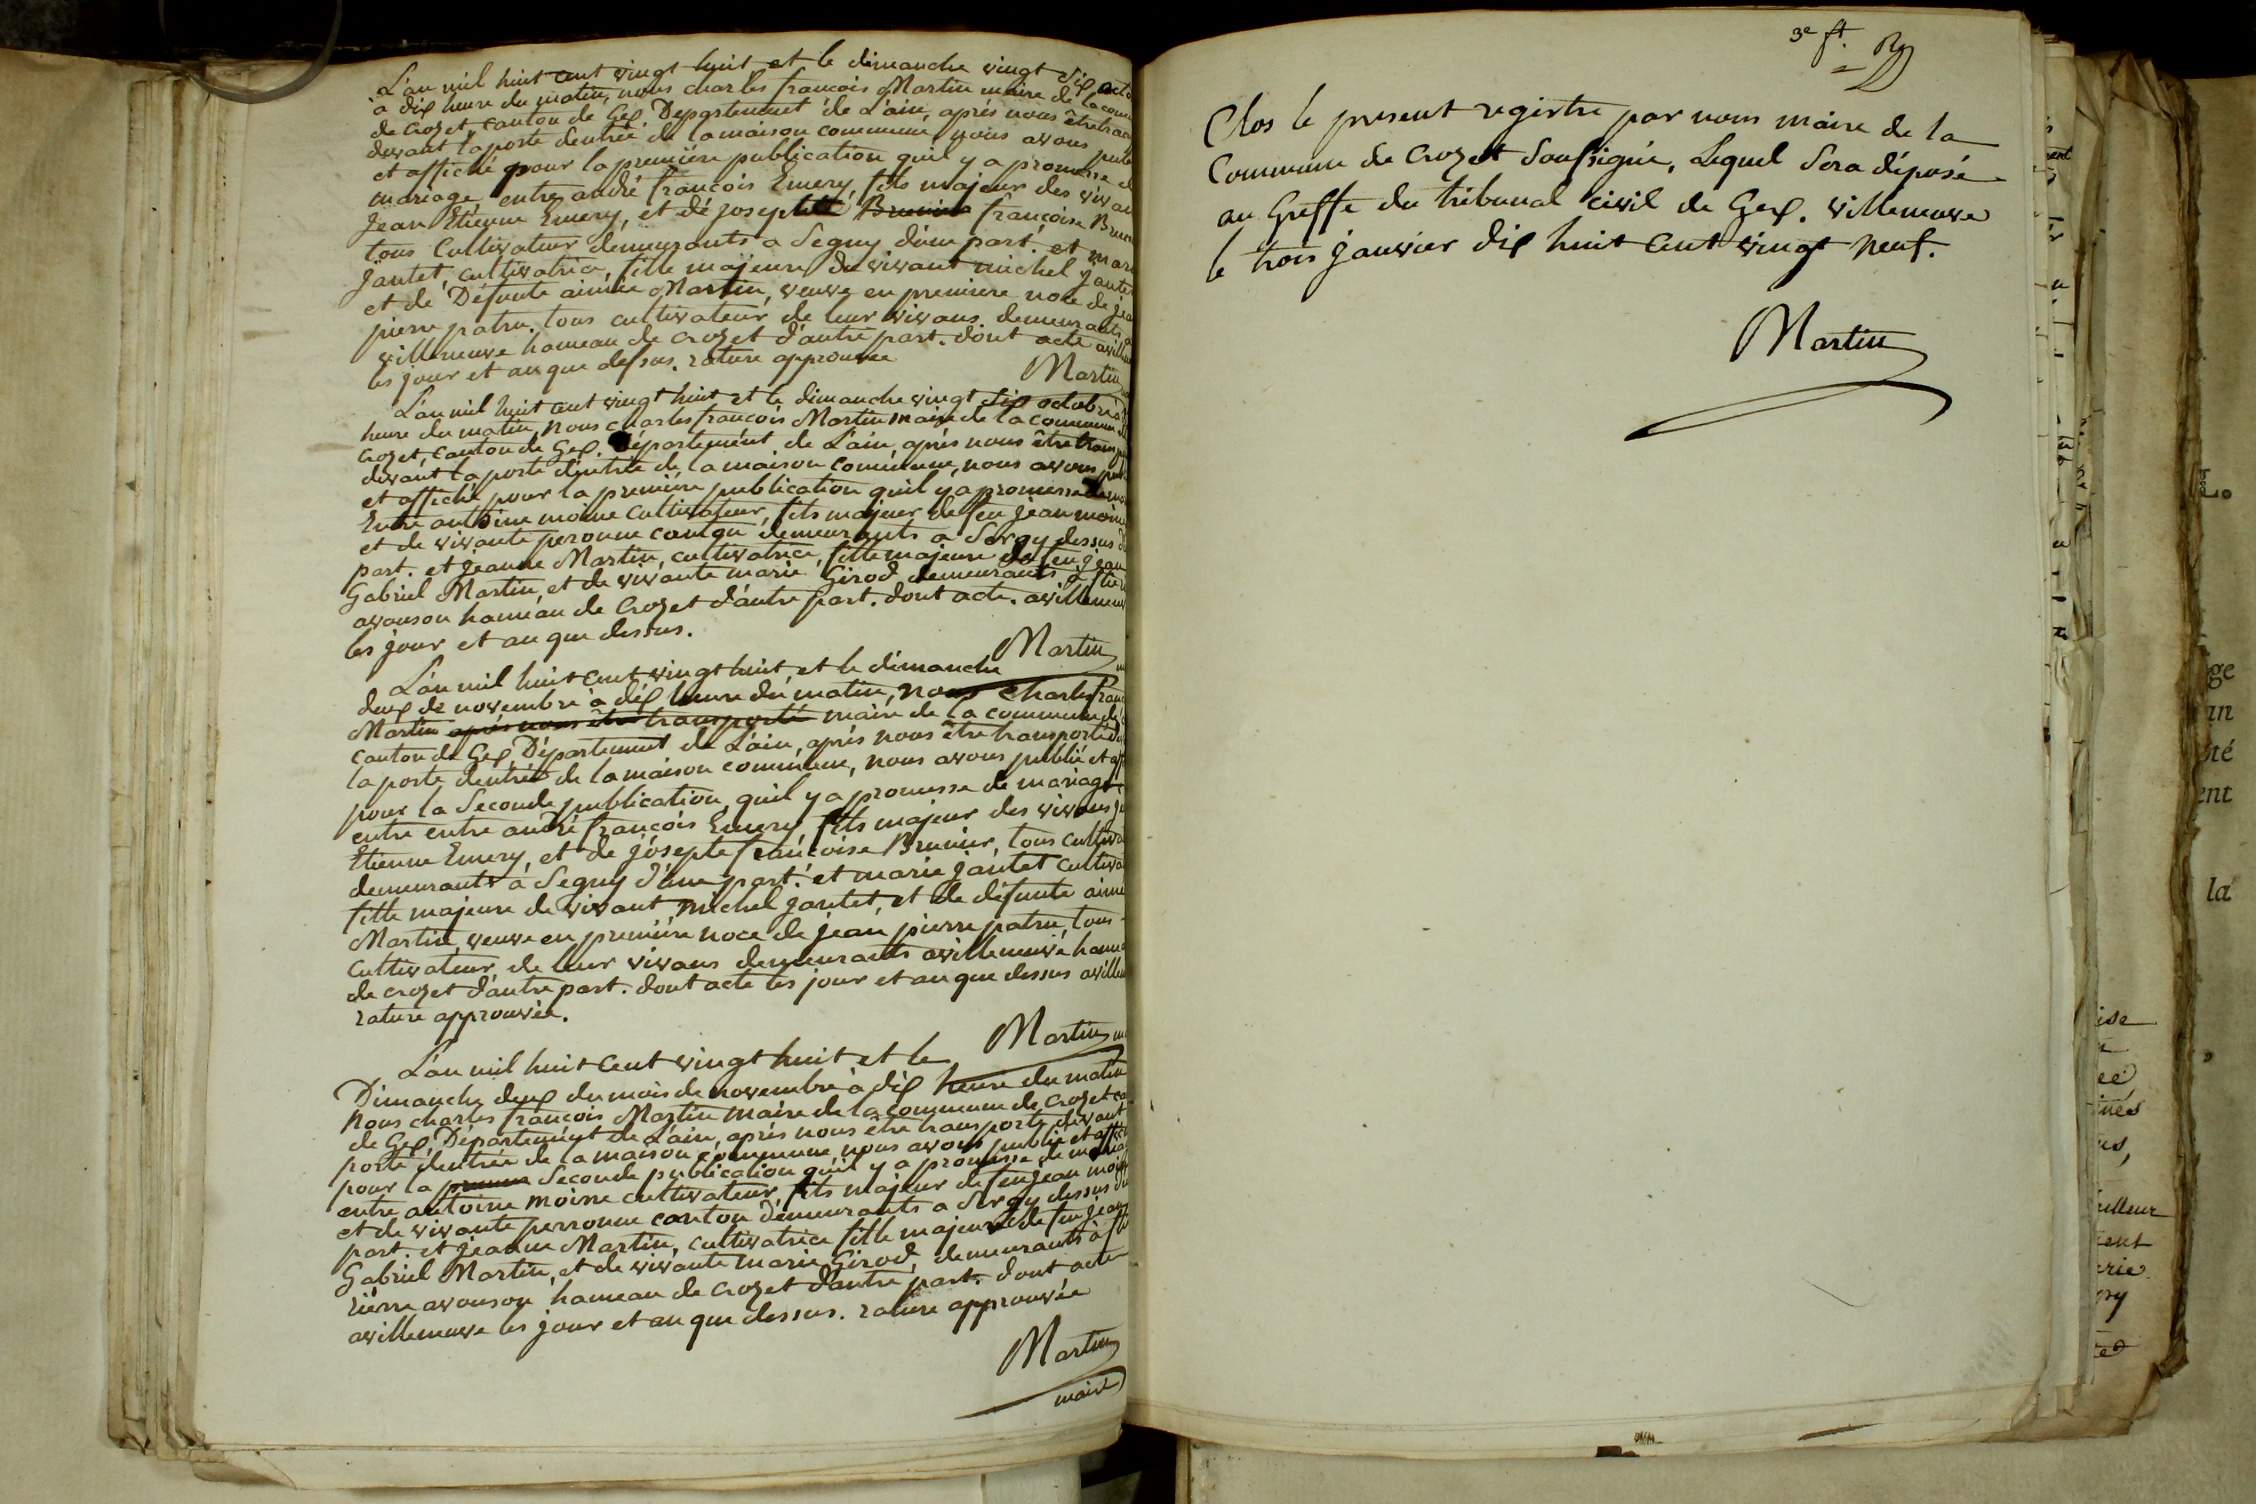 L'an mil huit cent vingt huit et le dimanche vingt six octo
à dix heure du matin, nous charles françois Martin maire de la comm
de Crozet, canton de Gex. Département de L'ain, après nous être tran
devant la porte dentrée de la maison commune nous avons publ
et affiché pour la première publication quil y a promesse d
mariage entre andré françois Emery, fils majeur des vivan
Jean Etienne Emery, et dé josephte Brunier françoise Brun
tous Cultivateur demeurants a Segny d'une part. et mari
Jantet, cultivatrice, fille majeure du vivant michel jantet
et de Défunte aimée Martin, veuve en première noce de jea
pierre patru. tous cultivateur de leur vivans demeurants a
villeneuve hameau de Crozet d'autre part. dont acte avillen
les jour et an que dessus. rature approuvée
Martin
L'an mil huit cent vingt huit et le dimanche vingt six octobre à
heure du matin, Nous charles françois Martin maire de la commune de
Crozet, canton de Gex. Département de L'ain, après nous être transp
devant la porte dentrée de la maison commune, nous avons publ
et affiché pour la première publication quil y a promesse de ma
Entre antoine moine cultivateur, fils majeur de feu jean moine
et de vivante peronne conton demeurants a Sergy dessus d
part. et jeanne Martin, cultivatrice, fille majeure de feu jean
Gabriel Martin, et de vivante marie Girod demeurants a
avouson hameau de Crozet d'autre part. dont acte. avilleneuv
les jour et an que dessus.
Martin
L'an mil huit cent vingt huit, et le dimanche
deux de novembre à dix heure du matin, nous Charles franc
Martin après nous être transporté maire de la commune de C
canton de Gex, Département de L'ain, après nous être transporté d
la porte dentrée de la maison commune, nous avons publié et aff
pour la Seconde publication, quil y a promesse de mariage
entre entre andré françois Emery, fils majeur des vivans je
Etienne Emery, et de josephte françoise Brunier, tous cultiva
demeurants à Segny d'une part. et marie jantet cultiva
fille majeure de vivant michel jantet, et de défunte aimé
Martin, veuve en première noce de jean pierre patru, tous
Cultivateur de leur vivans demeurants avilleneuve hame
de crozet d'autre part. dont acte les jour et an que dessus avillen
rature approuvée.
Martin
L'an mil huit Cent vingt huit et le
Dimanche deux du mois de novembre à dix heure du matin
Nous charles françois Martin maire de la commune de Crozet ca
de Gex, Département de L'ain, après nous être transporté devant
porte dentrée de la maison commune, nous avons publié et affich
pour la premie Seconde publication quil y a promesse de maria
entre antoine moine cultivateur, fils majeur de feu jean moin
et de vivante perronne conton demeurants a Sergy dessus du
part. et jeanne Martin, cultivatrice fille majeure de feu jean
Gabriel Martin, et de vivante marie Girod, demeurants à
rière avouson hameau de crozet d'autre part. dont acte
avilleneuve les jour et an que dessus. rature approuvée
Martin
maire
3e ft.
Clos le present registre par nous maire de la
Commune de Crozet Soussigné, Lequel Sera déposé
au Greffe du tribunal civil de Gex. villeneuve
le trois janvier dix huit cent vingt neuf.
Martin